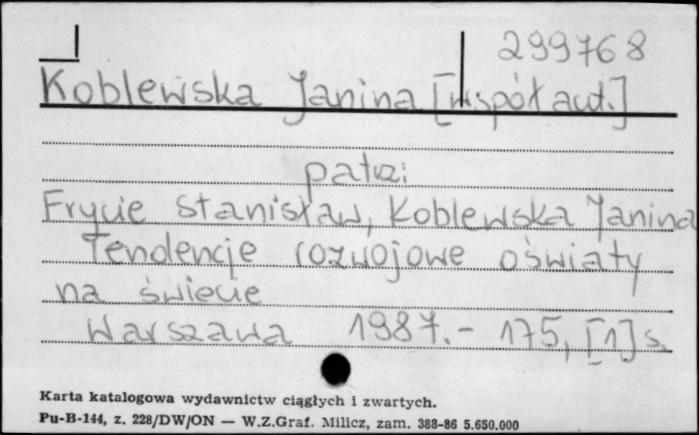 299768
Koblewska Janina [współaut.]
patrz:
Frycie Stanisław, Koblewska Janina
Tendencje rozwojowe oświaty
na świecie
Warszawa 1987.- 175, [1] s.
Karta katalogowa wydawnictw ciągłych i zwartych.
Pu-B-144, z. 228/DW/ON — W.Z.Graf. Milicz, zam. 388-86 5.650.000